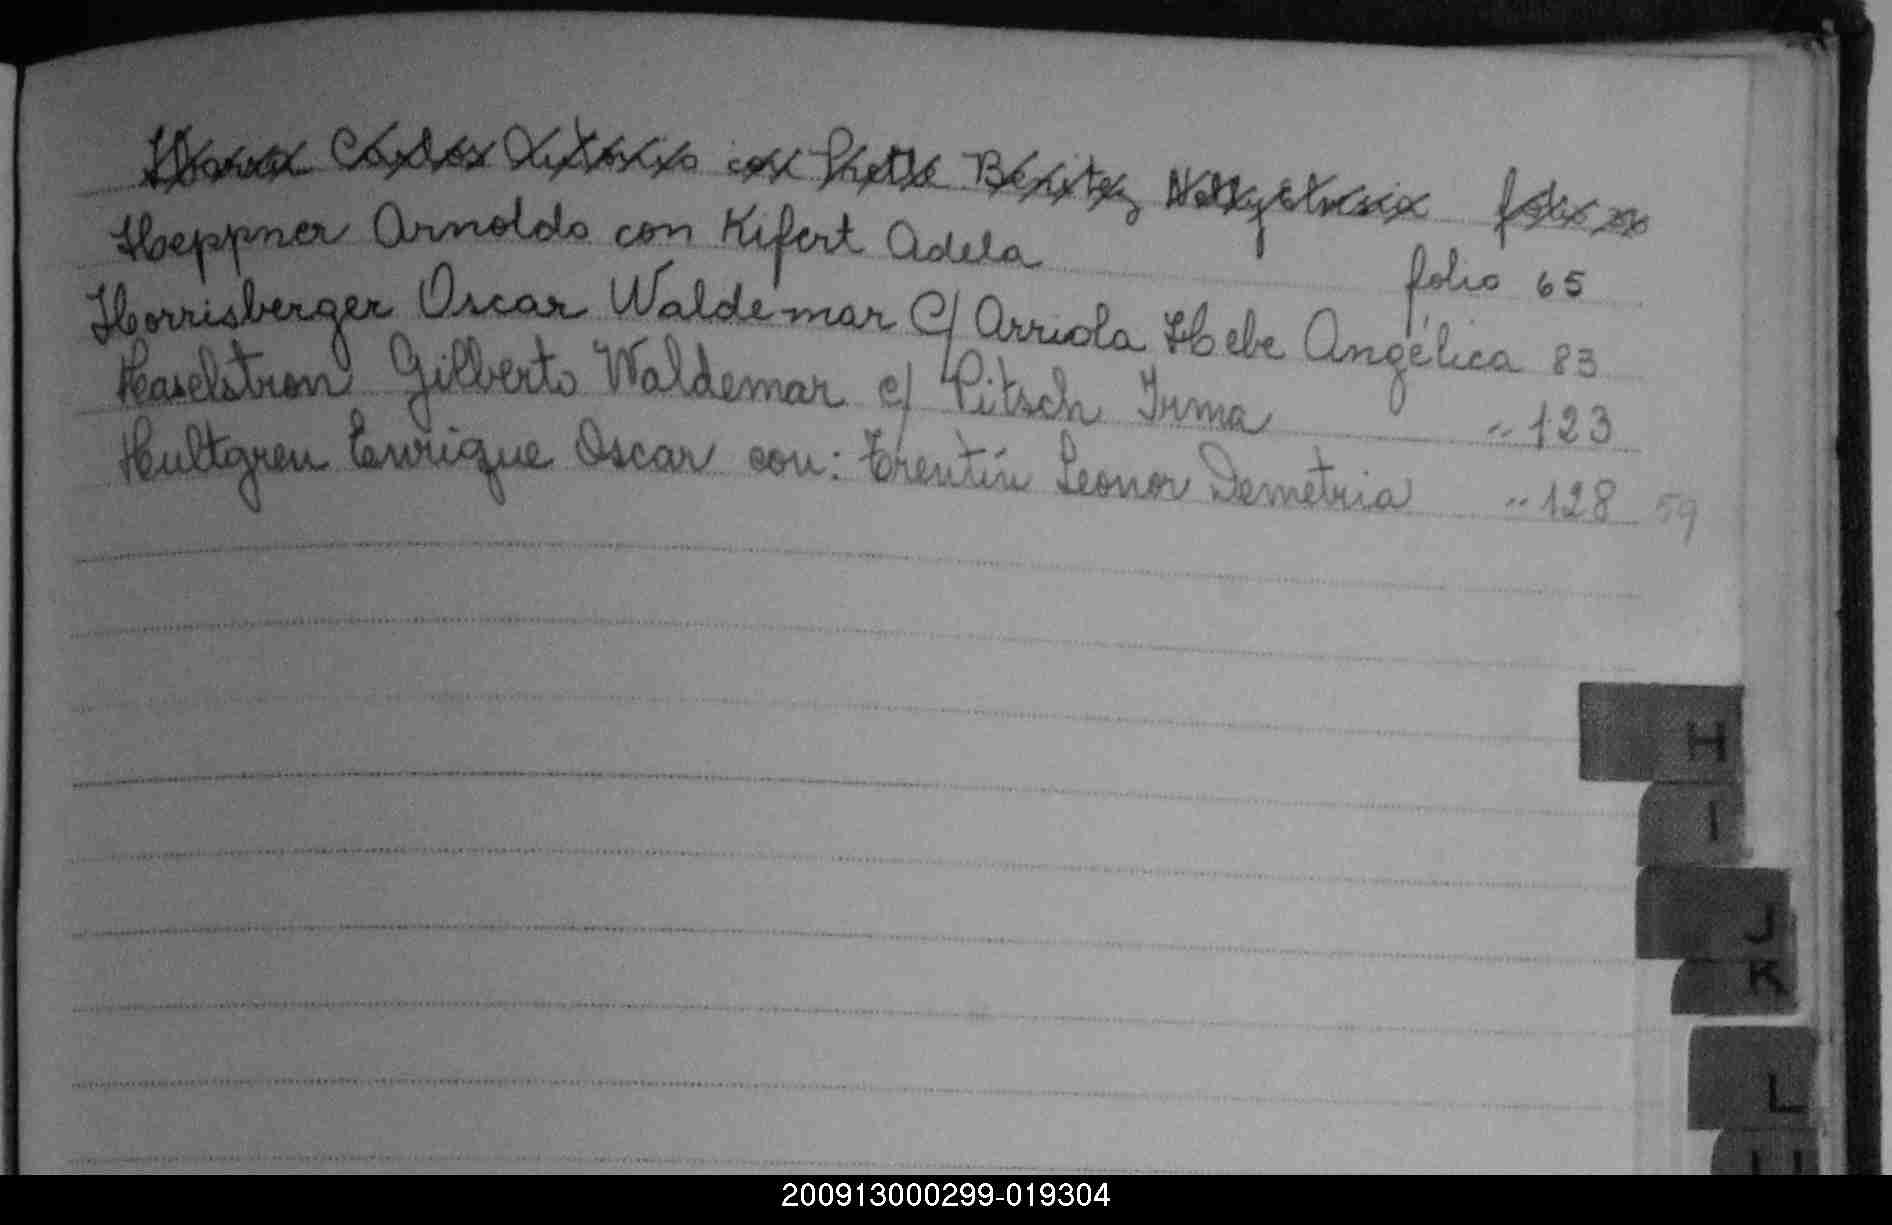 Carlos Antonio con Benitez folio
Hoeppner Arnoldo con Kifert Adela folio 65
Horrisberger Oscar Waldemar C/ Arriola Hebe Angélica 83
Haselstron Gilberto Waldemar c/ Pitsch Irma " 123
Hultgren Enrique Oscar con: Trentín Leonor Demetria " 128 59
H
I
J
K
L
200913000299-019304